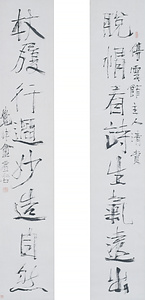 脫帽看詩生氣遠出
停雲館主人清賞
杖履行過妙造自然